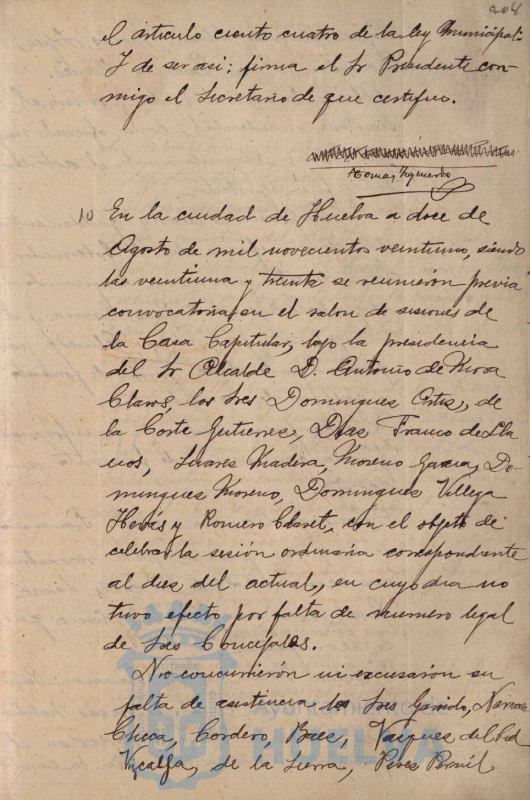 204
el artículo ciento cuatro de la ley Municipal.
Y de ser así; firma el Sr Presidente con-
migo el Secretario de que certifico.
Tomas Izquierdo
10 En la ciudad de Huelva a doce de
Agosto de mil novecientos veintiuno, siendo
las veintiuna y treinta se reunieron previa
convocatoria en el salon de sesiones de
la Casa Capitular, bajo la presidencia
del Sr Alcalde D. Antonio de Mora
Claros, los Sres Dominguez Ortiz, de
la Corte Gutierrez, Dias Franco de Lla
nos, Suares Madera, Moreno Garcia, Do-
minguez Moreno, Dominguez Villega
y Romero Claret, con el objeto de
celebrar la sesión ordinaria correspondiente
al diez del actual, en cuyo dia no
tuvo efecto por falta de numero legal
de Sres Concejales.
No concurrierón ni excusarón su
falta de asistencia los Sres Garrido,
Checa, Cordero, Baez, Vazquez del Cid
de la Sierra, Peres
Ayuntamiento de
HUELVA